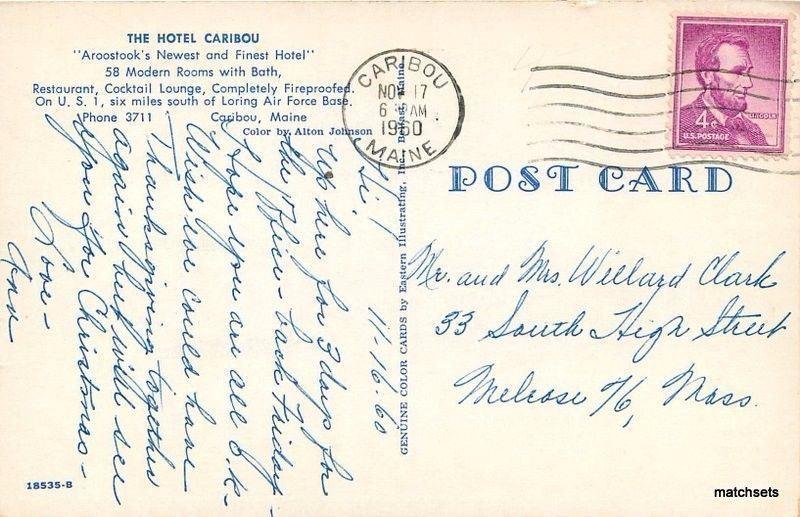 THE HOTEL CARIBOU
"Aroostook's Newest and Finest Hotel"
58 Modern Rooms with Bath,
Restaurant, Cocktail Lounge, Completely Fireproofed.
On U. S. 1, six miles south of Loring Air Force Base.
Phone 3711 Caribou, Maine
Color by Alton Johnson
CARIBOU
NOV 17
6 AM
1960
MAINE
4¢
LINCOLN
U.S. POSTAGE
POST CARD
11-16-60
Hi!
Up here for 3 days for
the Office - back Friday -
Hope you are all O.K. -
Wish we could have
Thanksgiving together
again but will see
you for Christmas -
Love -
Ann
GENUINE COLOR CARDS by Eastern Illustrating, Inc. Belfast, Maine
Mr. and Mrs. Willard Clark
33 South High Street
Melrose 76, Mass.
18535-B
matchsets